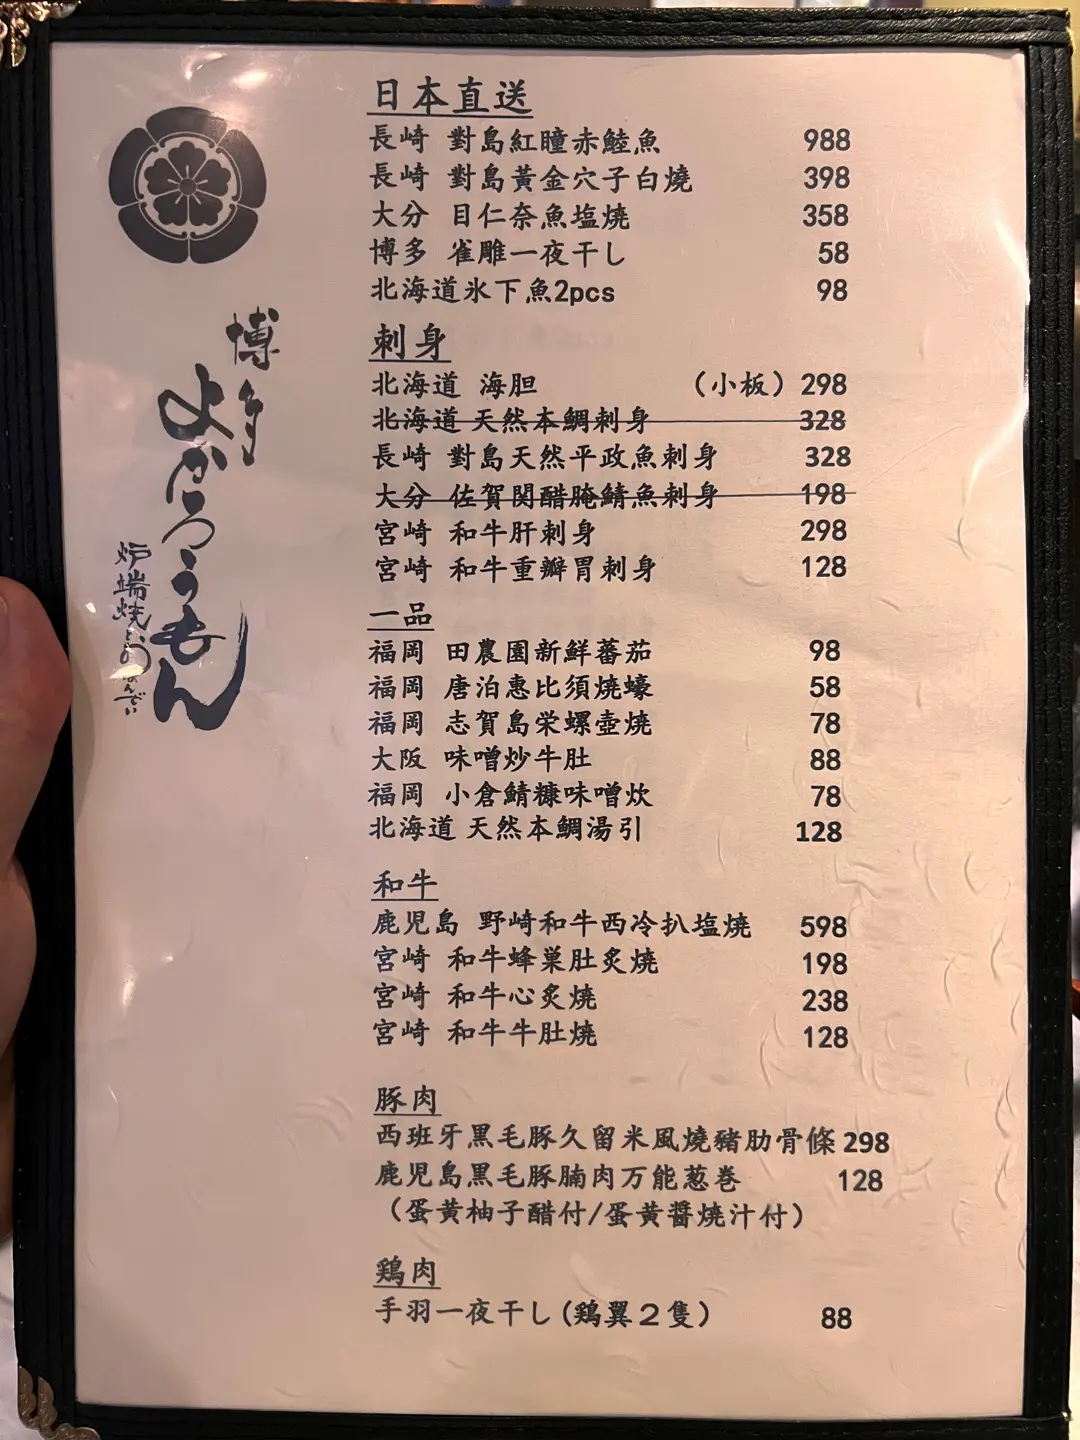 博多
よかろうもん
炉端焼
日本直送
長崎 對島紅瞳赤鯥魚 988
長崎 對島黃金穴子白燒 398
大分 目仁奈魚塩燒 358
博多 雀雕一夜干し 58
北海道氷下魚2pcs 98
刺身
北海道 海胆 (小板) 298
北海道 天然本鯛刺身 328
長崎 對島天然平政魚刺身 328
大分 佐賀関醋腌鯖魚刺身 198
宮崎 和牛肝刺身 298
宮崎 和牛重瓣胃刺身 128
一品
福岡 田農園新鮮蕃茄 98
福岡 唐泊惠比須燒蠔 58
福岡 志賀島栄螺壺燒 78
大阪 味噌炒牛肚 88
福岡 小倉鯖糠味噌炊 78
北海道 天然本鯛湯引 128
和牛
鹿児島 野崎和牛西冷扒塩燒 598
宮崎 和牛蜂巢肚炙燒 198
宮崎 和牛心炙燒 238
宮崎 和牛牛肚燒 128
豚肉
西班牙黒毛豚久留米風燒豬肋骨條 298
鹿児島黒毛豚腩肉万能葱巻 128
(蛋黄柚子醋付/蛋黄醬燒汁付)
鶏肉
手羽一夜干し(鶏翼2隻) 88